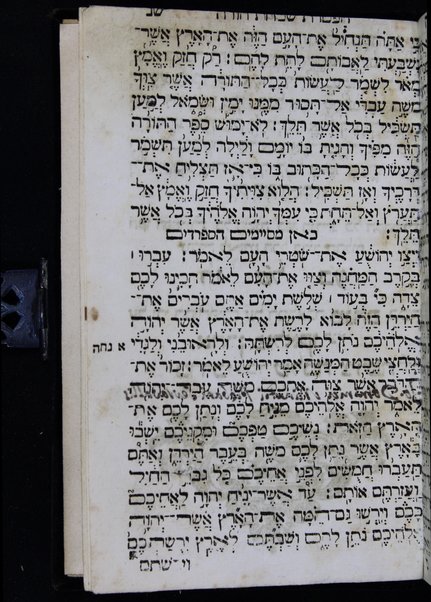 הפטרת שמחת תורה שנ
כי אתה תַּנְחִיל אֶת־הָעָם הַזֶּה אֶת־הָאָרֶץ אֲשֶׁר־
נִשְׁבַּעְתִּי לַאֲבוֹתָם לָתֵת לָהֶם׃ רַק חֲזַק וֶאֱמַץ
מְאֹד לִשְׁמֹר לַעֲשׂוֹת כְּכָל־הַתּוֹרָה אֲשֶׁר צִוְּךָ
מֹשֶׁה עַבְדִּי אַל־תָּסוּר מִמֶּנּוּ יָמִין וּשְׂמֹאל לְמַעַן
תַּשְׂכִּיל בְּכֹל אֲשֶׁר תֵּלֵךְ׃ לֹא־יָמוּשׁ סֵפֶר הַתּוֹרָה
הַזֶּה מִפִּיךָ וְהָגִיתָ בּוֹ יוֹמָם וָלַיְלָה לְמַעַן תִּשְׁמֹר
לַעֲשׂוֹת כְּכָל־הַכָּתוּב בּוֹ כִּי־אָז תַּצְלִיחַ אֶת־
דְּרָכֶיךָ וְאָז תַּשְׂכִּיל׃ הֲלוֹא צִוִּיתִיךָ חֲזַק וֶאֱמָץ אַל־
תַּעֲרֹץ וְאַל־תֵּחָת כִּי עִמְּךָ יְהוָה אֱלֹהֶיךָ בְּכֹל אֲשֶׁר
תֵּלֵךְ׃ כאן מסיימים הספרדים
וַיְצַו יְהוֹשֻׁעַ אֶת־שֹׁטְרֵי הָעָם לֵאמֹר׃ עִבְרוּ ׀
בְּקֶרֶב הַמַּחֲנֶה וְצַוּוּ אֶת־הָעָם לֵאמֹר הָכִינוּ לָכֶם
צֵדָה כִּי בְּעוֹד ׀ שְׁלֹשֶׁת יָמִים אַתֶּם עֹבְרִים אֶת־
הַיַּרְדֵּן הַזֶּה לָבוֹא לָרֶשֶׁת אֶת־הָאָרֶץ אֲשֶׁר יְהוָה
אֱלֹהֵיכֶם נֹתֵן לָכֶם לְרִשְׁתָּהּ׃ וְלָראוּבֵנִי וְלַגָּדִי
וְלַחֲצִי שֵׁבֶט הַמְנַשֶּׁה אָמַר יְהוֹשֻׁעַ לֵאמֹר׃ זָכוֹר אֶת־
הַדָּבָר אֲשֶׁר צִוָּה אֶתְכֶם מֹשֶׁה עֶבֶד־יְהוָה
לֵאמֹר יְהוָה אֱלֹהֵיכֶם מֵנִיחַ לָכֶם וְנָתַן לָכֶם אֶת־
הָאָרֶץ הַזֹּאת׃ נְשֵׁיכֶם טַפְּכֶם וּמִקְנֵיכֶם יֵשְׁבוּ
בָּאָרֶץ אֲשֶׁר נָתַן לָכֶם מֹשֶׁה בְּעֵבֶר הַיַּרְדֵּן וְאַתֶּם
תַּעַבְרוּ חֲמֻשִׁים לִפְנֵי אֲחֵיכֶם כֹּל גִּבּוֹרֵי הַחַיִל
וַעֲזַרְתֶּם אוֹתָם׃ עַד אֲשֶׁר־יָנִיחַ יְהוָה לַאֲחֵיכֶם
כָּכֶם וְיָרְשׁוּ גַם־הֵמָּה אֶת־הָאָרֶץ אֲשֶׁר־יְהוָה
אֱלֹהֵיכֶם נֹתֵן לָהֶם וְשַׁבְתֶּם לְאֶרֶץ יְרֻשַּׁתְכֶם
וי־שתם